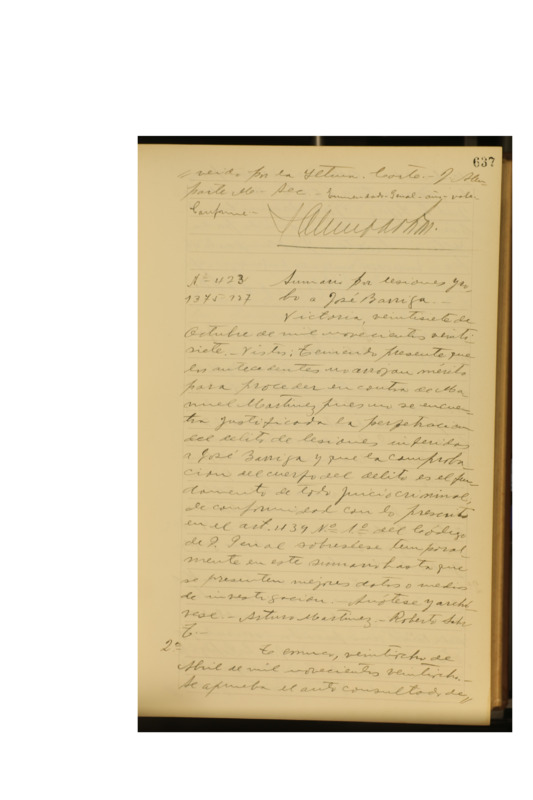 637
por la Iltma. Corte.- J. Alem
parte M.- Sec.-
Conforme.-
Nº 423 Sumario por lesiones y ro,
bo a José Barriga.-
Victoria, veintisiete de
Octubre de mil novecientos veinti
siete.- Vistos: Teniendo presente que
los antecedentes no arrojan mérito
para proceder en contra de Ma
nuel Martinez pues no se encuen
tra justificada la perpetracion
del delito de lesiones inferidas
a José Barriga y que la comproba
cion del cuerpo del delito es el fun
damento de todo juicio criminal,
de conformidad con lo presento
en el art. 439 Nº 1º del Código
de P. Penal sobreséese temporal
mente en este sumario hasta que
se presenten mejores datos o medios
de investigacion.- Anótese y archí
vese.- Arturo Martinez.- Roberto
T.-
2º Temuco, veintiocho de
Abril de mil novecientos veintiocho.-
Se aprueba el auto consultado de,,